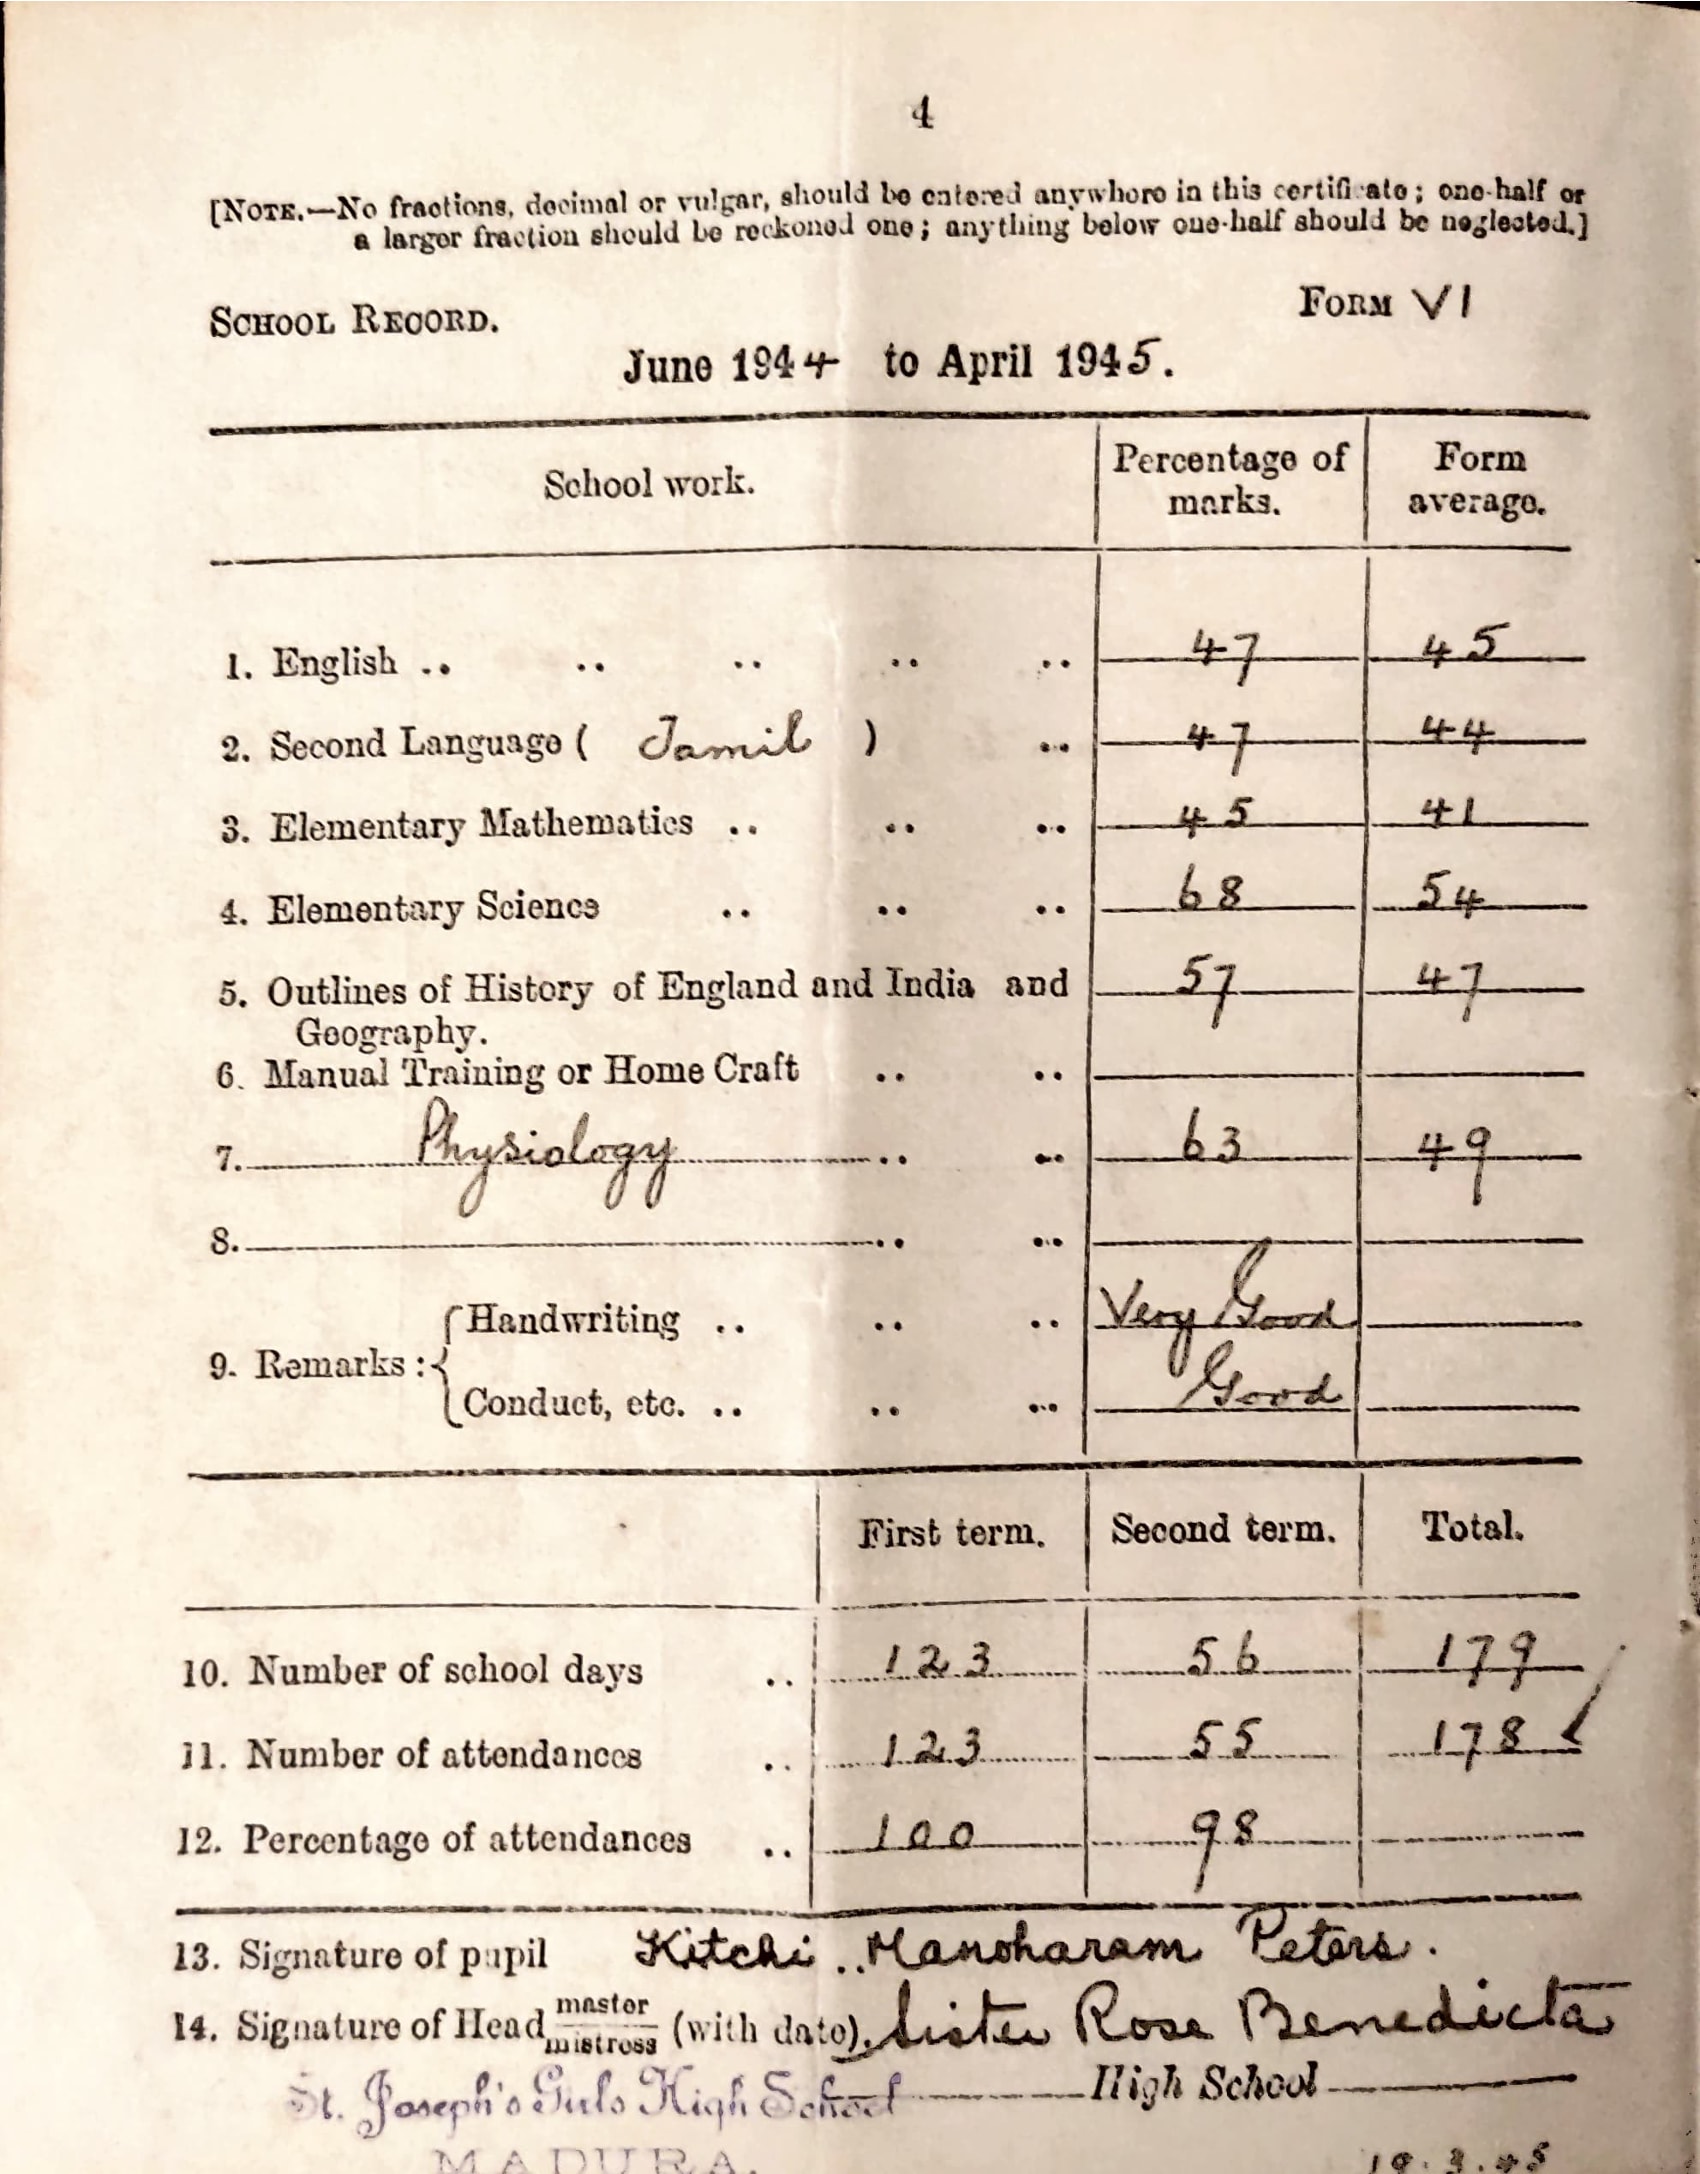 4
[NOTE.—No fractions, decimal or vulgar, should be entered anywhere in this certificate; one-half or
a larger fraction should be reckoned one; anything below one-half should be neglected.]
SCHOOL RECORD. FORM VI
June 1944 to April 1945.
School work. Percentage of marks. Form average.
1. English .. .. .. .. .. 47 45
2. Second Language ( Tamil ) .. 47 44
3. Elementary Mathematics .. .. .. 45 41
4. Elementary Science .. .. .. 68 54
5. Outlines of History of England and India and 57 47
Geography.
6. Manual Training or Home Craft .. ..
7. Physiology .. .. 63 49
8. .. ..
9. Remarks : { Handwriting .. .. .. Very Good
Conduct, etc. .. .. .. Good
First term. Second term. Total.
10. Number of school days .. 123 56 179
11. Number of attendances .. 123 55 178
12. Percentage of attendances .. 100 98
13. Signature of pupil Kitchi .. Manoharam Peters.
14. Signature of Head master/mistress (with date). Sister Rose Benedicta
St. Joseph's Girls High School High School
MADURA.
19.3.45